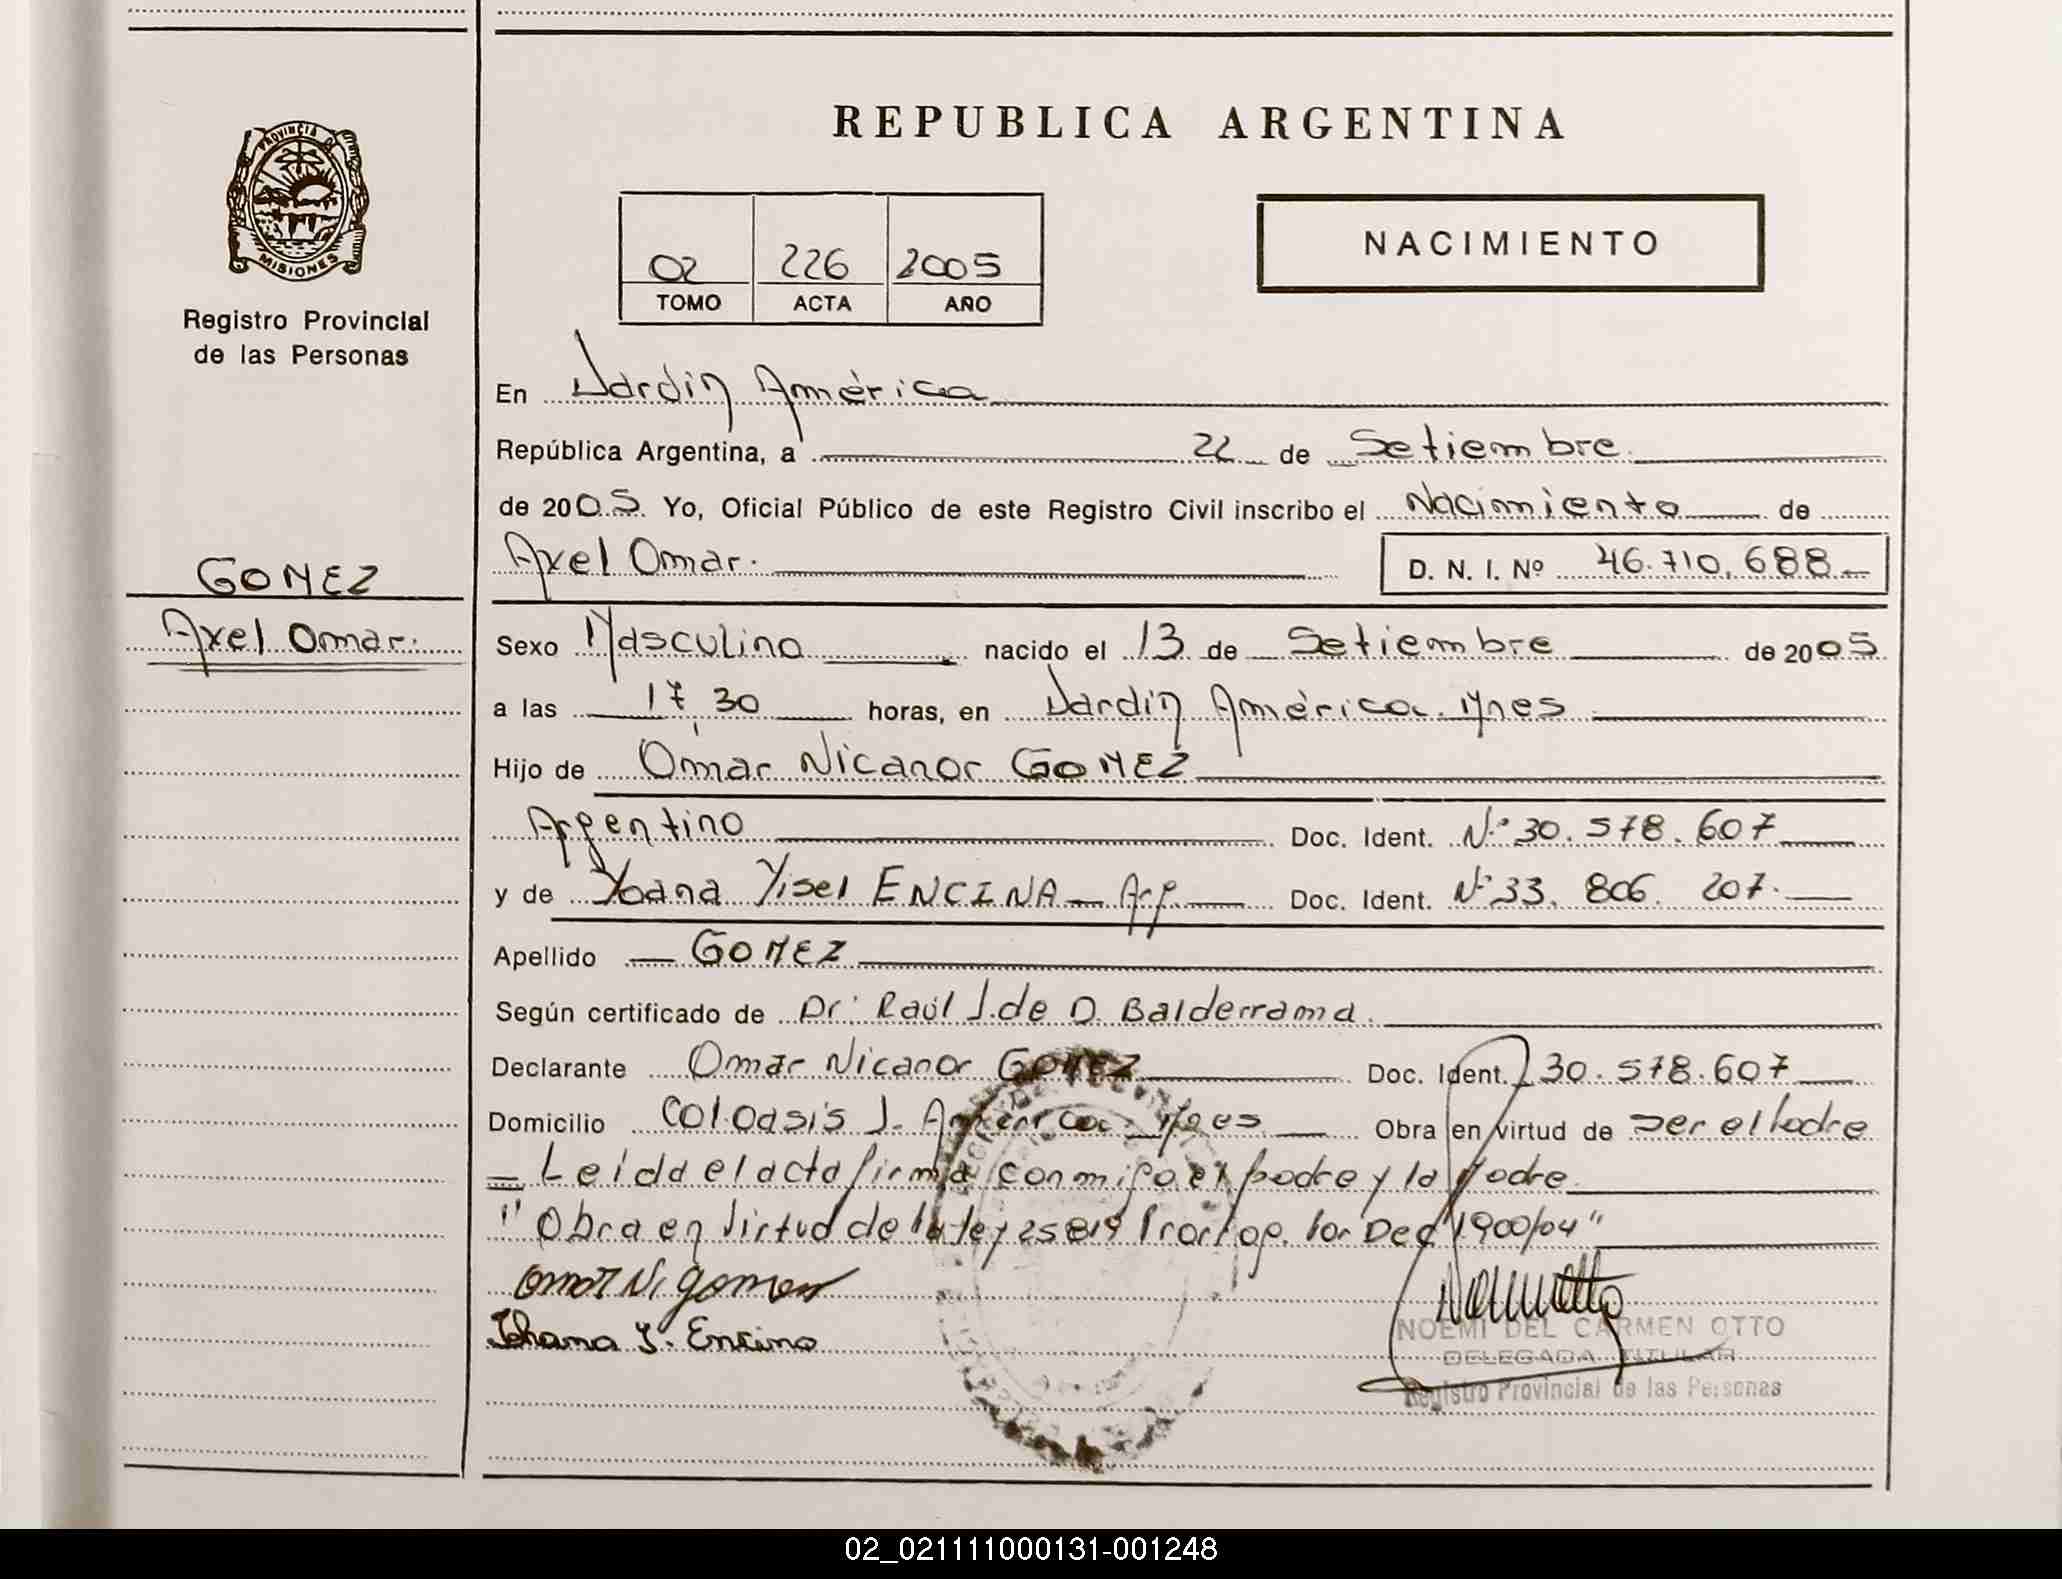 REPUBLICA ARGENTINA
PROVINCIA DE
MISIONES
Registro Provincial
de las Personas
NACIMIENTO
02 226 2005
TOMO ACTA AÑO
En Jardín América
República Argentina, a 22 de Setiembre
de 2005 Yo, Oficial Público de este Registro Civil inscribo el Nacimiento de
Axel Omar. D. N. I. Nº 46.710.688
GOMEZ
Axel Omar.
Sexo Masculino nacido el 13 de Setiembre de 2005
a las 17,30 horas, en Jardín América. Mnes
Hijo de Omar Nicanor GOMEZ
Argentino Doc. Ident. Nº 30.578.607
y de Yoana Yisel ENCINA - Arg. Doc. Ident. Nº 33.806.207.
Apellido GOMEZ
Según certificado de Dr. Raúl J. de D. Balderrama.
Declarante Omar Nicanor GOMEZ Doc. Ident. 30.578.607
Domicilio Col. Oasis J. América. Mnes Obra en virtud de ser el Padre
Leida el acta firma conmigo el padre y la Madre.
"Obra en Virtud de la ley 25819 Prorrog. Por Dec 1900/04"
Omar N. Gomez
Johana Y. Encina
NOEMI DEL CARMEN OTTO
DELEGADA TITULAR
Registro Provincial de las Personas
02_021111000131-001248